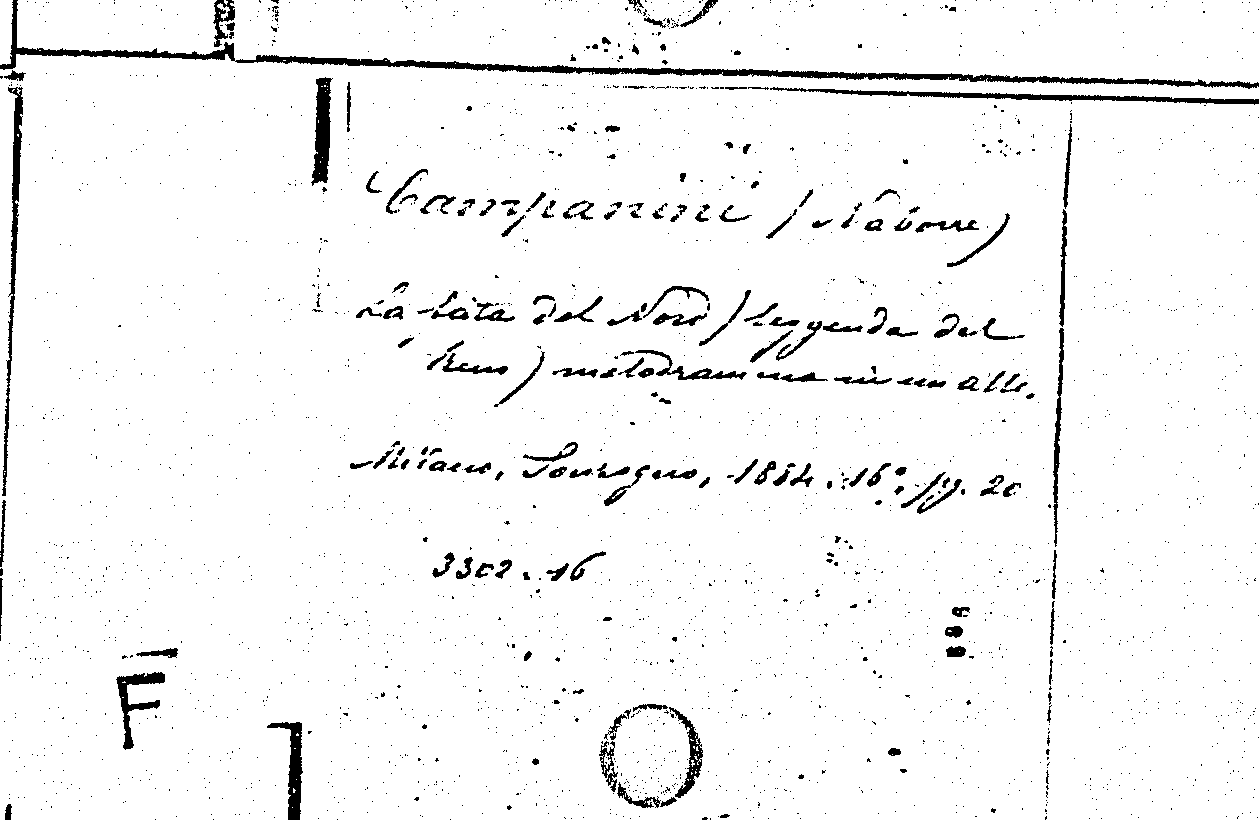 Campanini (Naborre)
La fata del Nord (leggenda del
Reno) melodramma in un atto.
Milano, Sonzogno, 1884. 16°, pg. 20
3302. 16
F